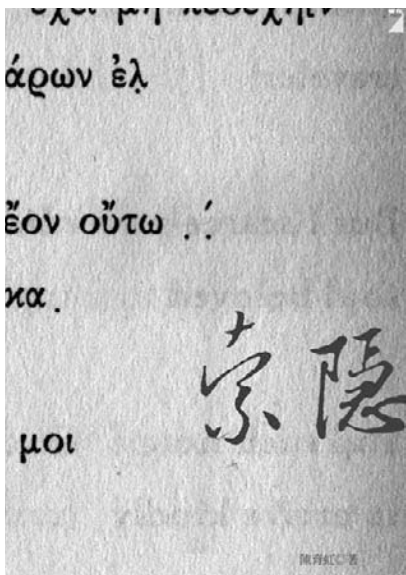 άρων ἐλ̣
ἔον οὔτω
κα̣.
索隐
μοι
陳育虹◎著